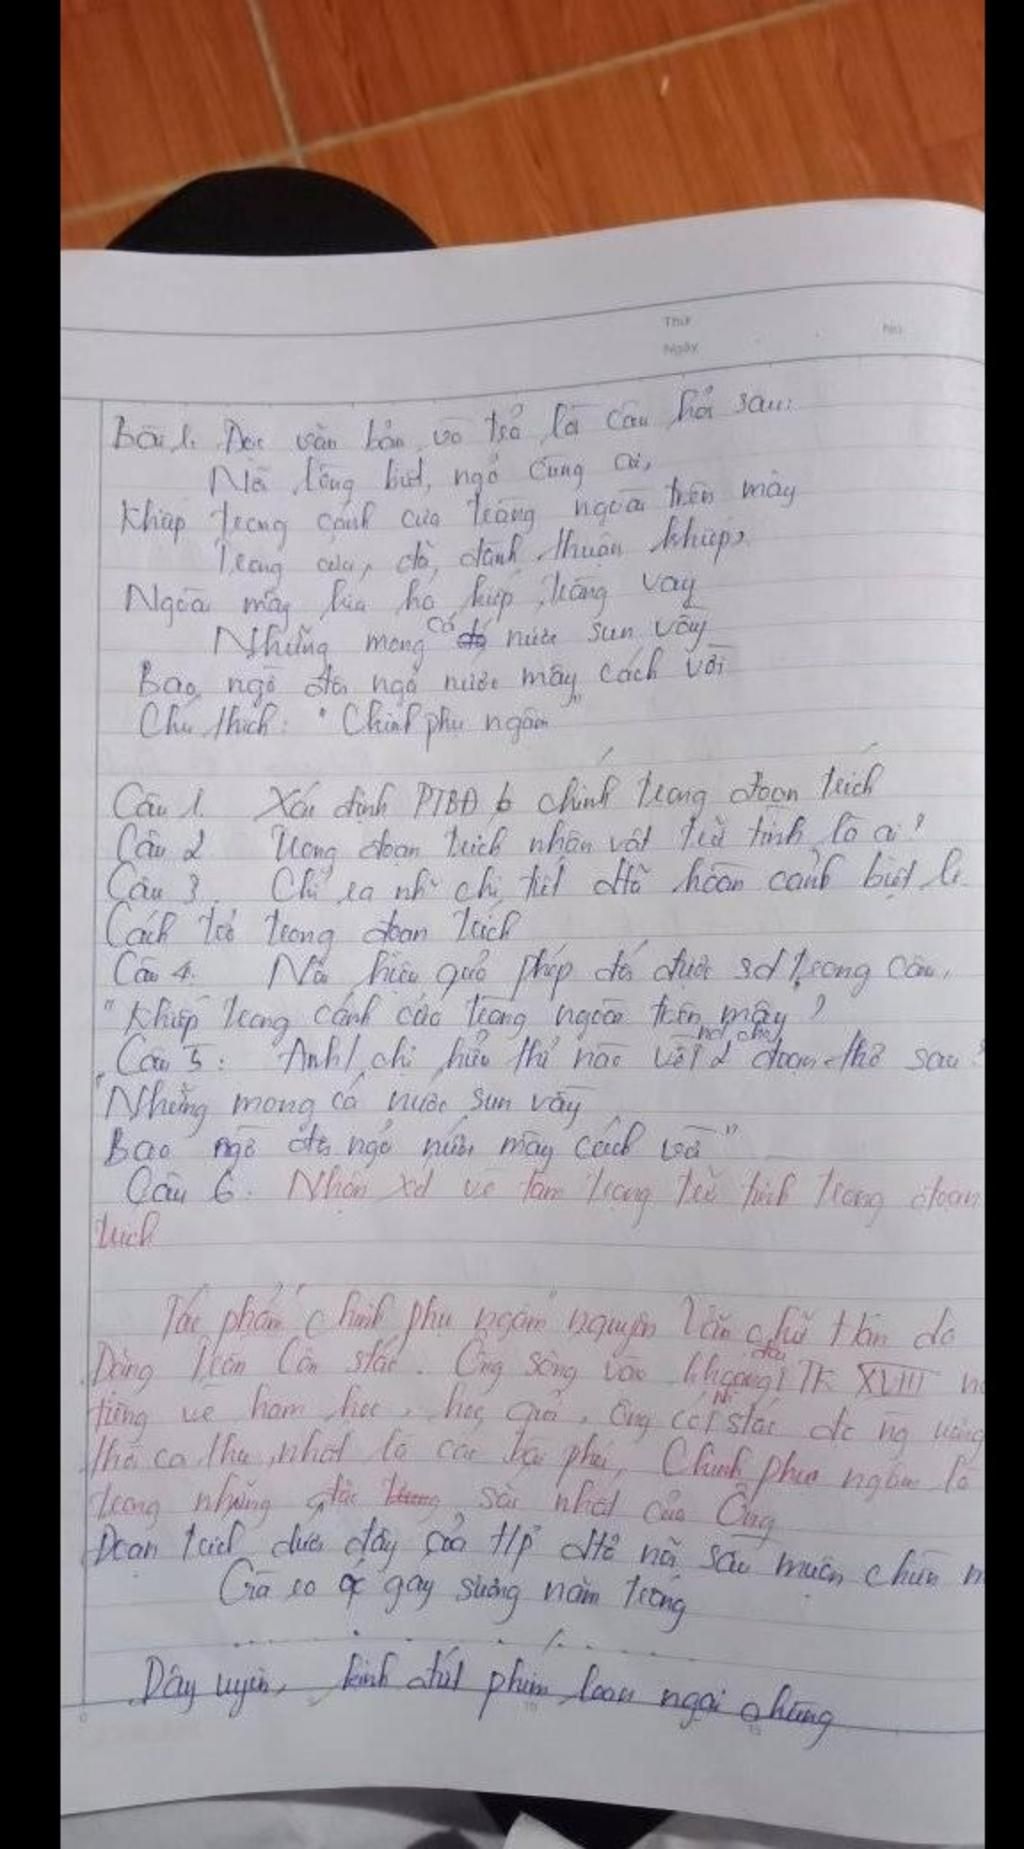 Thứ
Ngày
No.
Bài 1. Đọc văn bản và trả lời câu hỏi sau:
Nỗi lòng biết, ngỏ cùng ai,
Khiếp trong cánh cửa trăng ngoài trên mây
Trong cửa, đã, đành thuận khiếp,
Ngoài mây kia há kiếp trăng vay
Những mong cá nước sun vầy
Bao ngờ đôi ngả nước mây cách vời
Chú thích: "Chinh phụ ngâm"
Câu 1. Xác định PTBĐ chính trong đoạn trích
Câu 2. Trong đoạn trích nhân vật trữ tình là ai?
Câu 3. Chỉ ra chi tiết hoàn cảnh biệt li
Cách trở trong đoạn trích
Câu 4. Nêu hiệu quả phép đối được sd trong câu,
"Khiếp trong cánh cửa trăng ngoài trên mây?
Câu 5: Anh/chị hiểu thế nào về 2 đoạn thơ sau?
"Những mong cá nước sun vầy
Bao ngờ đôi ngả nước mây cách vời"
Câu 6. Nhận xét về tâm trạng trữ tình trong đoạn
trích
Tác phẩm "Chinh phụ ngâm" nguyên văn chữ Hán do
Đặng Trần Côn stác. Ông sống vào khoảng đầu TK XVIII
tiếng về ham học, học giỏi, ông có stác
thơ ca nhất là các phú, Chinh phụ ngâm là
trong những sắc nhất của Ông
Đoạn trích dưới đây của t/p nỗi sầu muộn
Gà eo óc gáy sương năm trống
Dây uyên, kinh đứt phím loan ngại chùng